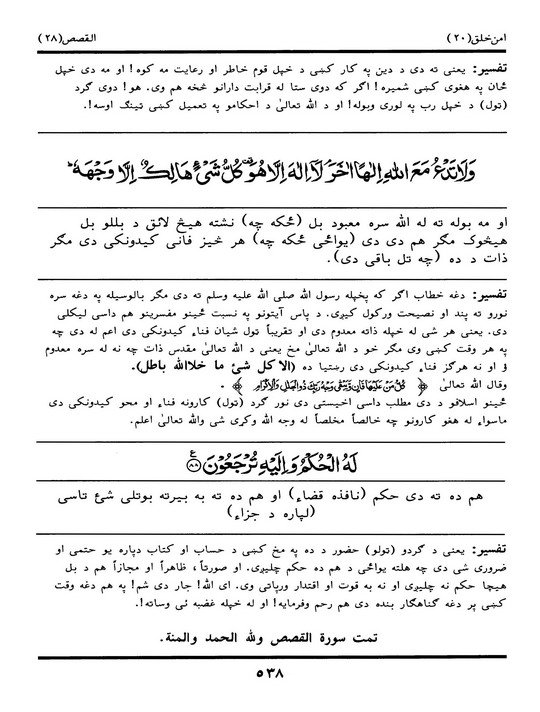 امن خلق (٢٠)
القصص (٢٨)
تفسیر: یعنی ته دی د دین په کار کښی د خپل قوم خاطر او رعایت مه کوه! او مه دی خپل
ځان په هغوی کښی شمیره! اګر که دوی ستا له قرابت دارانو څخه هم وی. هو! دوی ګرد
(تول) د خپل رب په لوری وبوله! او د الله تعالیٰ د احکامو په تعمیل کښی تینګ اوسه!.
وَلَا تَدْعُ مَعَ اللّٰهِ اِلٰهًا اٰخَرَ لَآ اِلٰهَ اِلَّا هُوَ كُلُّ شَیْءٍ هَالِكٌ اِلَّا وَجْهَهٗ
او مه بوله ته له الله سره معبود بل (ځکه چه) نشته هیڅ لائق د بللو بل
هیڅوک مګر هم دی دی (یواځی ځکه چه) هر څیز فانی کیدونکی دی مګر
ذات د ده (چه تل باقی دی).
تفسیر: دغه خطاب اګر که پخپله رسول الله صلی الله علیه وسلم ته دی مګر بالوسیله په دغه سره
نورو ته پند او نصیحت ورکول کیږی. د پاس آیتونو په نسبت ځینو مفسرینو هم داسی لیکلی
دی. یعنی هر شی له خپله ذاته معدوم دی او تقریباً تول شیان فناء کیدونکی دی اعم له دی چه
په هر وقت کښی وی مګر خو د الله تعالیٰ مخ یعنی د الله تعالیٰ مقدس ذات چه نه له سره معدوم
ؤ او نه هرګز فناء کیدونکی دی رښتیا ده (الا کل شئ ما خلاالله باطل).
وقال الله تعالیٰ ﴿ كُلُّ مَنْ عَلَيْهَا فَانٍ وَيَبْقَى وَجْهُ رَبِّكَ ذُو الْجَلَالِ وَالْإِكْرَامِ ﴾ .
ځینو اسلافو د دی مطلب داسی اخیستی دی نور ګرد (تول) کارونه فناء او محو کیدونکی دی
ماسواء له هغو کارونو چه خالصاً مخلصاً له وجه الله وکړی شی والله تعالیٰ اعلم.
لَهُ الْحُكْمُ وَاِلَيْهِ تُرْجَعُوْنَ ﴿٨٨﴾ ع
هم ده ته دی حکم (نافذه قضاء) او هم ده ته به بیرته بوتلی شئ تاسی
(لپاره د جزاء)
تفسیر: یعنی د ګردو (تولو) حضور د ده په مخ کښی د حساب او کتاب دپاره یو حتمی او
ضروری شی دی چه هلته یواځی د هم ده حکم چلیږی. او صورتاً، ظاهراً او مجازاً هم د بل
هیچا حکم نه چلیږی او نه به قوت او اقتدار ورپاتی وی. ای الله! جار دی شم! په هم دغه وقت
کښی پر دغه ګناهګار بنده دی هم رحم وفرمایه! او له خپله غضبه ئی وساته!.
تمت سورة القصص ولله الحمد والمنة.
٥٣٨